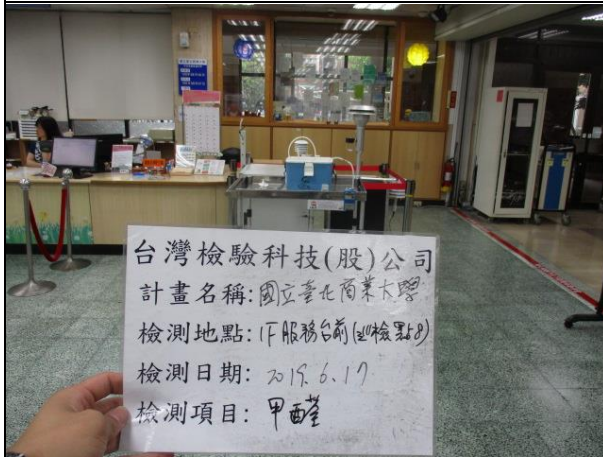 台灣檢驗科技(股)公司
計畫名稱:國立臺北商業大學
檢測地點:1F服務台前(巡檢點8)
檢測日期: 2019.6.17
檢測項目: 甲醛